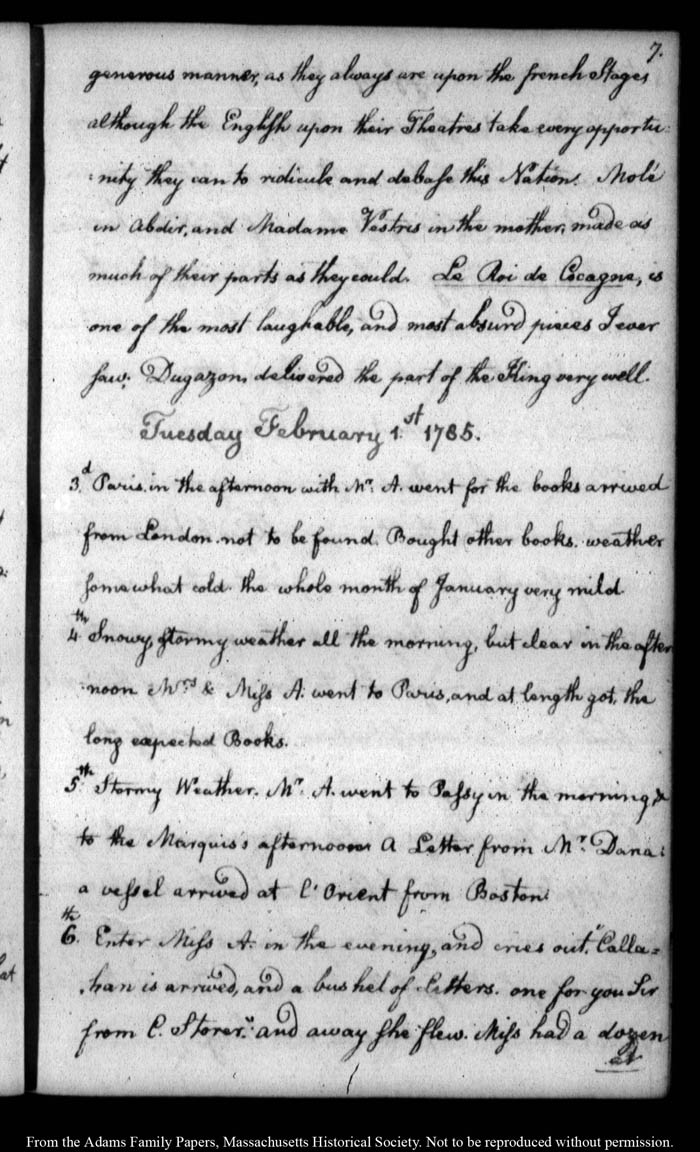 7.
generous manner, as they always are upon the french Stage,
although the English upon their Theatres take every opportu-
-nity they can to ridicule and debase this Nation. Molé
in Abdir, and Madame Vestris in the mother, made as
much of their parts as they could. Le Roi de Cocagne, is
one of the most laughable, and most absurd pieces I ever
saw. Dugazon, delivered the part of the King very well.
Tuesday February 1.st 1785.
3.d Paris in the afternoon with Mr. A. went for the books arrived
from London. not to be found. Bought other books. weather
somewhat cold. the whole month of January very mild
4.th Snowy, stormy weather all the morning, but clear in the after
noon Mrs. & Miss A. went to Paris, and at length got, the
long expected Books.
5.th Stormy Weather. Mr. A. went to Passy in the morning &
to the Marquis's afternoon A Letter from Mr. Dana:
a vessel arrived at l'Orient from Boston.
6.th Enter Miss A. in the evening, and cries out, "Calla=
han is arrived, and a bushel of Letters. one for you Sir
from C. Storer." and away she flew. Miss had a dozen
at
From the Adams Family Papers, Massachusetts Historical Society. Not to be reproduced without permission.